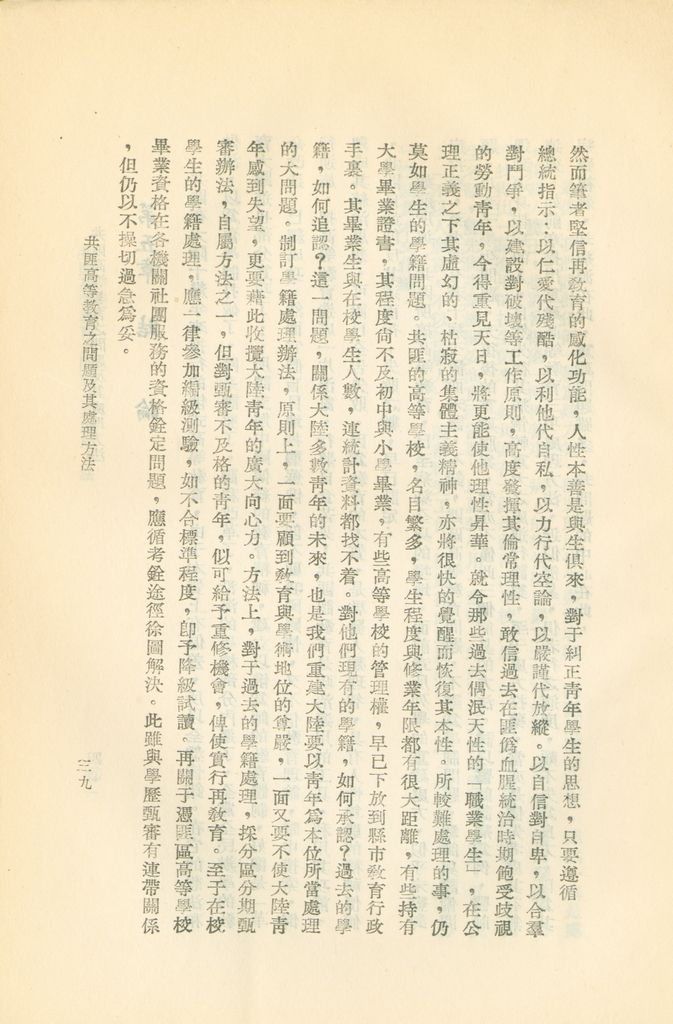 然而筆者堅信再敎育的感化功能，人性本善是與生俱來，對于糾正靑年學生的思想，只要遵循
總統指示：以仁愛代殘酷，以利他代自私，以力行代空論，以嚴謹代放縱。以自信對自卑，以合羣
對鬥爭，以建設對破壞等工作原則，高度發揮其倫常理性，敢信過去在匪僞血腥統治時期飽受歧視
的勞動靑年，今得重見天日，將更能使他理性昇華。就令那些過去偶泯天性的「職業學生」，在公
理正義之下其虛幻的、枯寂的集體主義精神，亦將很快的覺醒而恢復其本性。所較難處理的事，仍
莫如學生的學籍問題。共匪的高等學校，名目繁多，學生程度與修業年限都有很大距離，有些持有
大學畢業證書，其程度尙不及初中與小學畢業，有些高等學校的管理權，早已下放到縣市敎育行政
手裏。其畢業生與在校學生人數，連統計資料都找不着。對他們現有的學籍，如何承認？過去的學
籍，如何追認？這一問題，關係大陸多數靑年的未來，也是我們重建大陸要以靑年爲本位所當處理
的大問題。制訂學籍處理辦法，原則上，一面要顧到敎育與學術地位的尊嚴，一面又要不使大陸靑
年感到失望，更要藉此收攬大陸靑年的廣大向心力。方法上，對于過去的學籍處理，採分區分期甄
審辦法，自屬方法之一，但對甄審不及格的靑年，似可給予重修機會，俾使實行再敎育。至于在校
學生的學籍處理，應一律參加編級測驗，如不合標準程度，卽予降級試讀。再關于憑匪區高等學校
畢業資格在各機關社團服務的資格銓定問題，應循考銓途徑徐圖解決。此雖與學歷甄審有連帶關係
，但仍以不操切過急爲妥。
共匪高等敎育之問題及其處理方法
三九